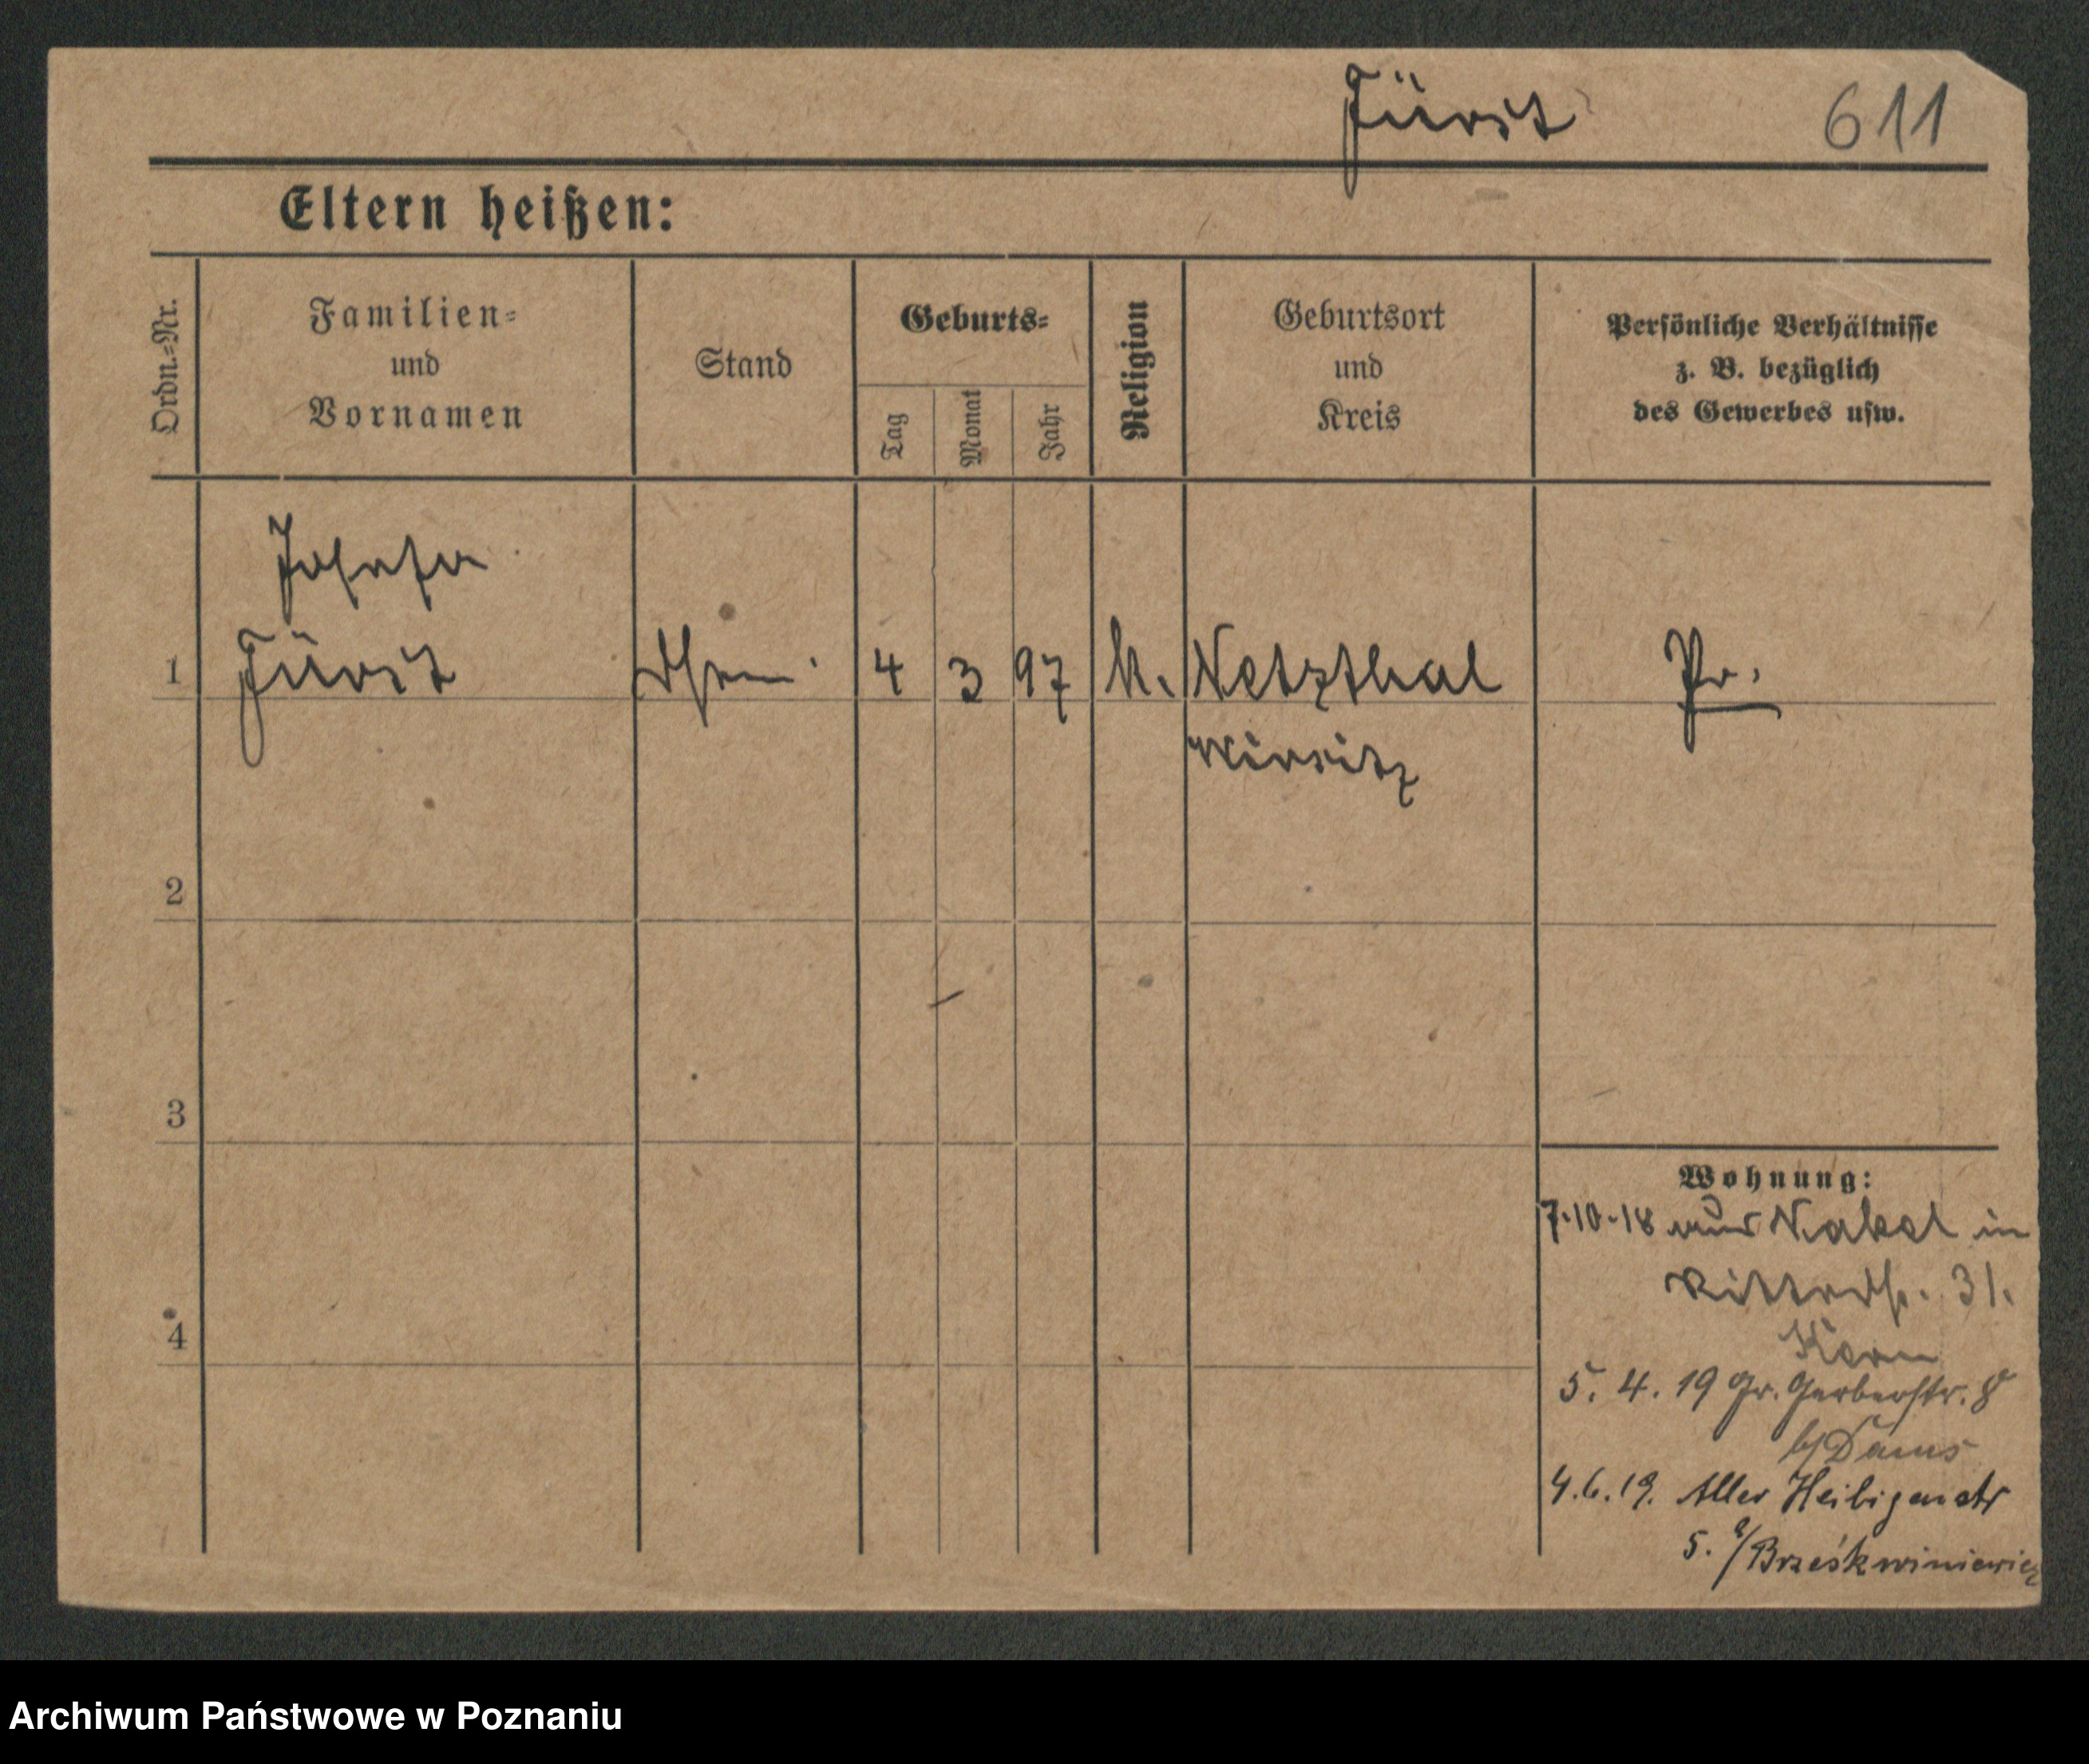 Fürst 611
Eltern heißen:
Ordn.=Nr.
Familien=
und
Vornamen
Stand
Geburts=
Tag
Monat
Jahr
Religion
Geburtsort
und
Kreis
Persönliche Verhältnisse
z. B. bezüglich
des Gewerbes usw.
Josefa
1 Fürst 4 3 97 k. Netzthal Pr.
Wirsitz
2
3
4
Wohnung:
7.10.18 aus Nakel in
Ritterstr. 31.
5. 4. 19 Gr. Gerberstr. 8
b/Dams
4.6.19. Aller Heiligenstr
5. Brześkwiniewicz
Archiwum Państwowe w Poznaniu